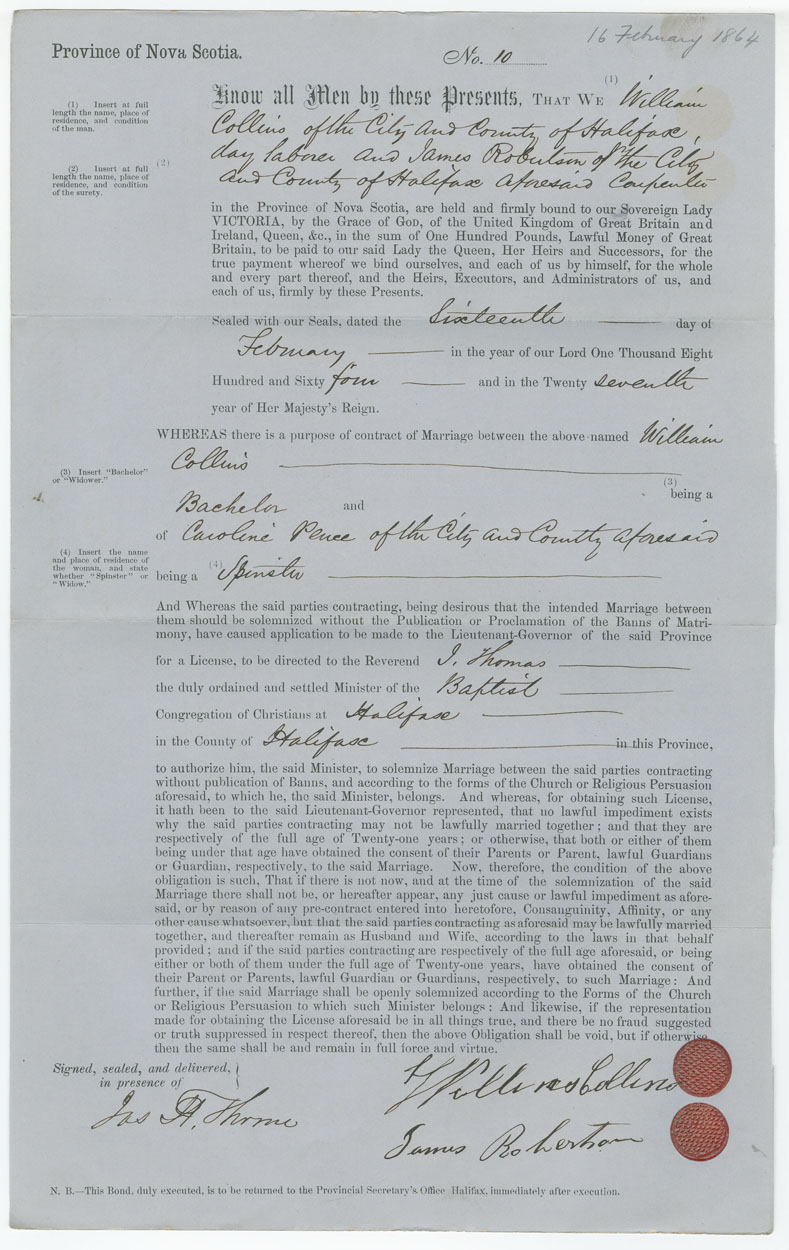 16 February 1864
Province of Nova Scotia.
No. 10
(1)
Know all Men by these Presents, THAT WE William
Collins of the City and County of Halifax,
day laborer and James Robertson of the City
and County of Halifax aforesaid Carpenter
(1) Insert at full
length the name, place of
residence, and condition
of the man.
(2)
(2) Insert at full
length the name, place of
residence, and condition
of the surety.
in the Province of Nova Scotia, are held and firmly bound to our Sovereign Lady
VICTORIA, by the Grace of GOD, of the United Kingdom of Great Britain and
Ireland, Queen, &c., in the sum of One Hundred Pounds, Lawful Money of Great
Britain, to be paid to our said Lady the Queen, Her Heirs and Successors, for the
true payment whereof we bind ourselves, and each of us by himself, for the whole
and every part thereof, and the Heirs, Executors, and Administrators of us, and
each of us, firmly by these Presents.
Sealed with our Seals, dated the Sixteenth day of
February in the year of our Lord One Thousand Eight
Hundred and Sixty four and in the Twenty seventh
year of Her Majesty's Reign.
WHEREAS there is a purpose of contract of Marriage between the above named William
Collins
(3)
being a
(3) Insert "Bachelor"
or "Widower."
Bachelor and
of Caroline of the City and Countty aforesaid
(4) Insert the name
and place of residence of
the woman, and state
whether "Spinster" or
"Widow."
being a (4) Spinster
And Whereas the said parties contracting, being desirous that the intended Marriage between
them should be solemnized without the Publication or Proclamation of the Banns of Matri-
mony, have caused application to be made to the Lieutenant-Governor of the said Province
for a License, to be directed to the Reverend J. Thomas
the duly ordained and settled Minister of the Baptist
Congregation of Christians at Halifax
in the County of Halifax in this Province,
to authorize him, the said Minister, to solemnize Marriage between the said parties contracting
without publication of Banns, and according to the forms of the Church or Religious Persuasion
aforesaid, to which he, the said Minister, belongs. And whereas, for obtaining such License,
it hath been to the said Lieutenant-Governor represented, that no lawful impediment exists
why the said parties contracting may not be lawfully married together; and that they are
respectively of the full age of Twenty-one years; or otherwise, that both or either of them
being under that age have obtained the consent of their Parents or Parent, lawful Guardians
or Guardian, respectively, to the said Marriage. Now, therefore, the condition of the above
obligation is such, That if there is not now, and at the time of the solemnization of the said
Marriage there shall not be, or hereafter appear, any just cause or lawful impediment as afore-
said, or by reason of any pre-contract entered into heretofore, Consanguinity, Affinity, or any
other cause whatsoever, but that the said parties contracting as aforesaid may be lawfully married
together, and thereafter remain as Husband and Wife, according to the laws in that behalf
provided; and if the said parties contracting are respectively of the full age aforesaid, or being
either or both of them under the full age of Twenty-one years, have obtained the consent of
their Parent or Parents, lawful Guardian or Guardians, respectively, to such Marriage: And
further, if the said Marriage shall be openly solemnized according to the Forms of the Church
or Religious Persuasion to which such Minister belongs: And likewise, if the representation
made for obtaining the License aforesaid be in all things true, and there be no fraud suggested
or truth suppressed in respect thereof, then the above Obligation shall be void, but if otherwise,
then the same shall be and remain in full force and virtue.
Signed, sealed, and delivered,
in presence of
Jas H. Thorne
William Collins
James Robertson
N. B.—This Bond, duly executed, is to be returned to the Provincial Secretary's Office Halifax, immediately after execution.